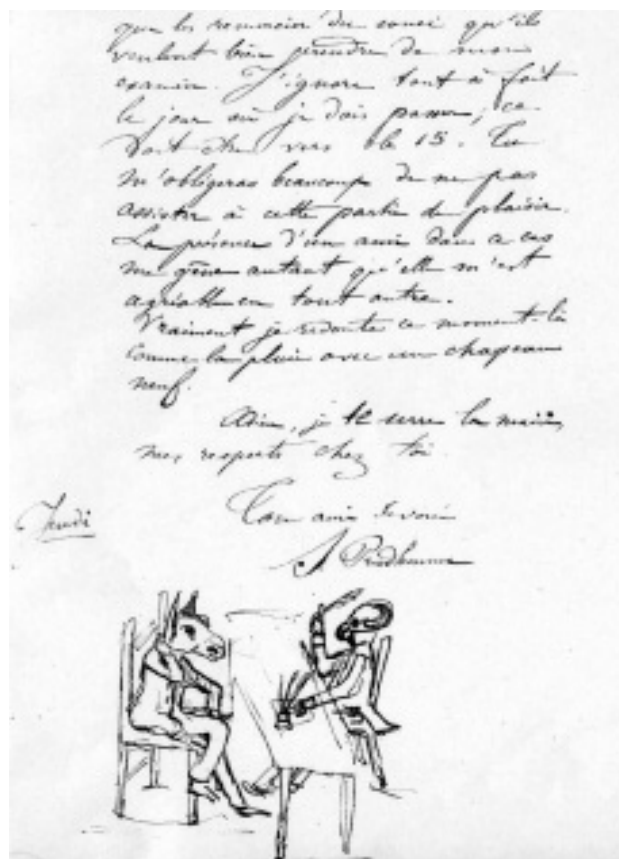 que les remercier du souci qu'ils
veulent bien prendre de mon
examen. J'ignore tout à fait
le jour où je dois passer; ce
doit être vers le 15. Tu
m'obligeras beaucoup de ne pas
assister à cette partie de plaisir.
La présence d'un ami dans ce cas
me gêne autant qu'elle m'est
agréable en tout autre.
Vraiment je redoute ce moment-là
comme la pluie avec un chapeau
neuf.
Adieu, je te serre la main,
mes respects chez toi.
Ton ami dévoué
Jeudi
S Prudhomme